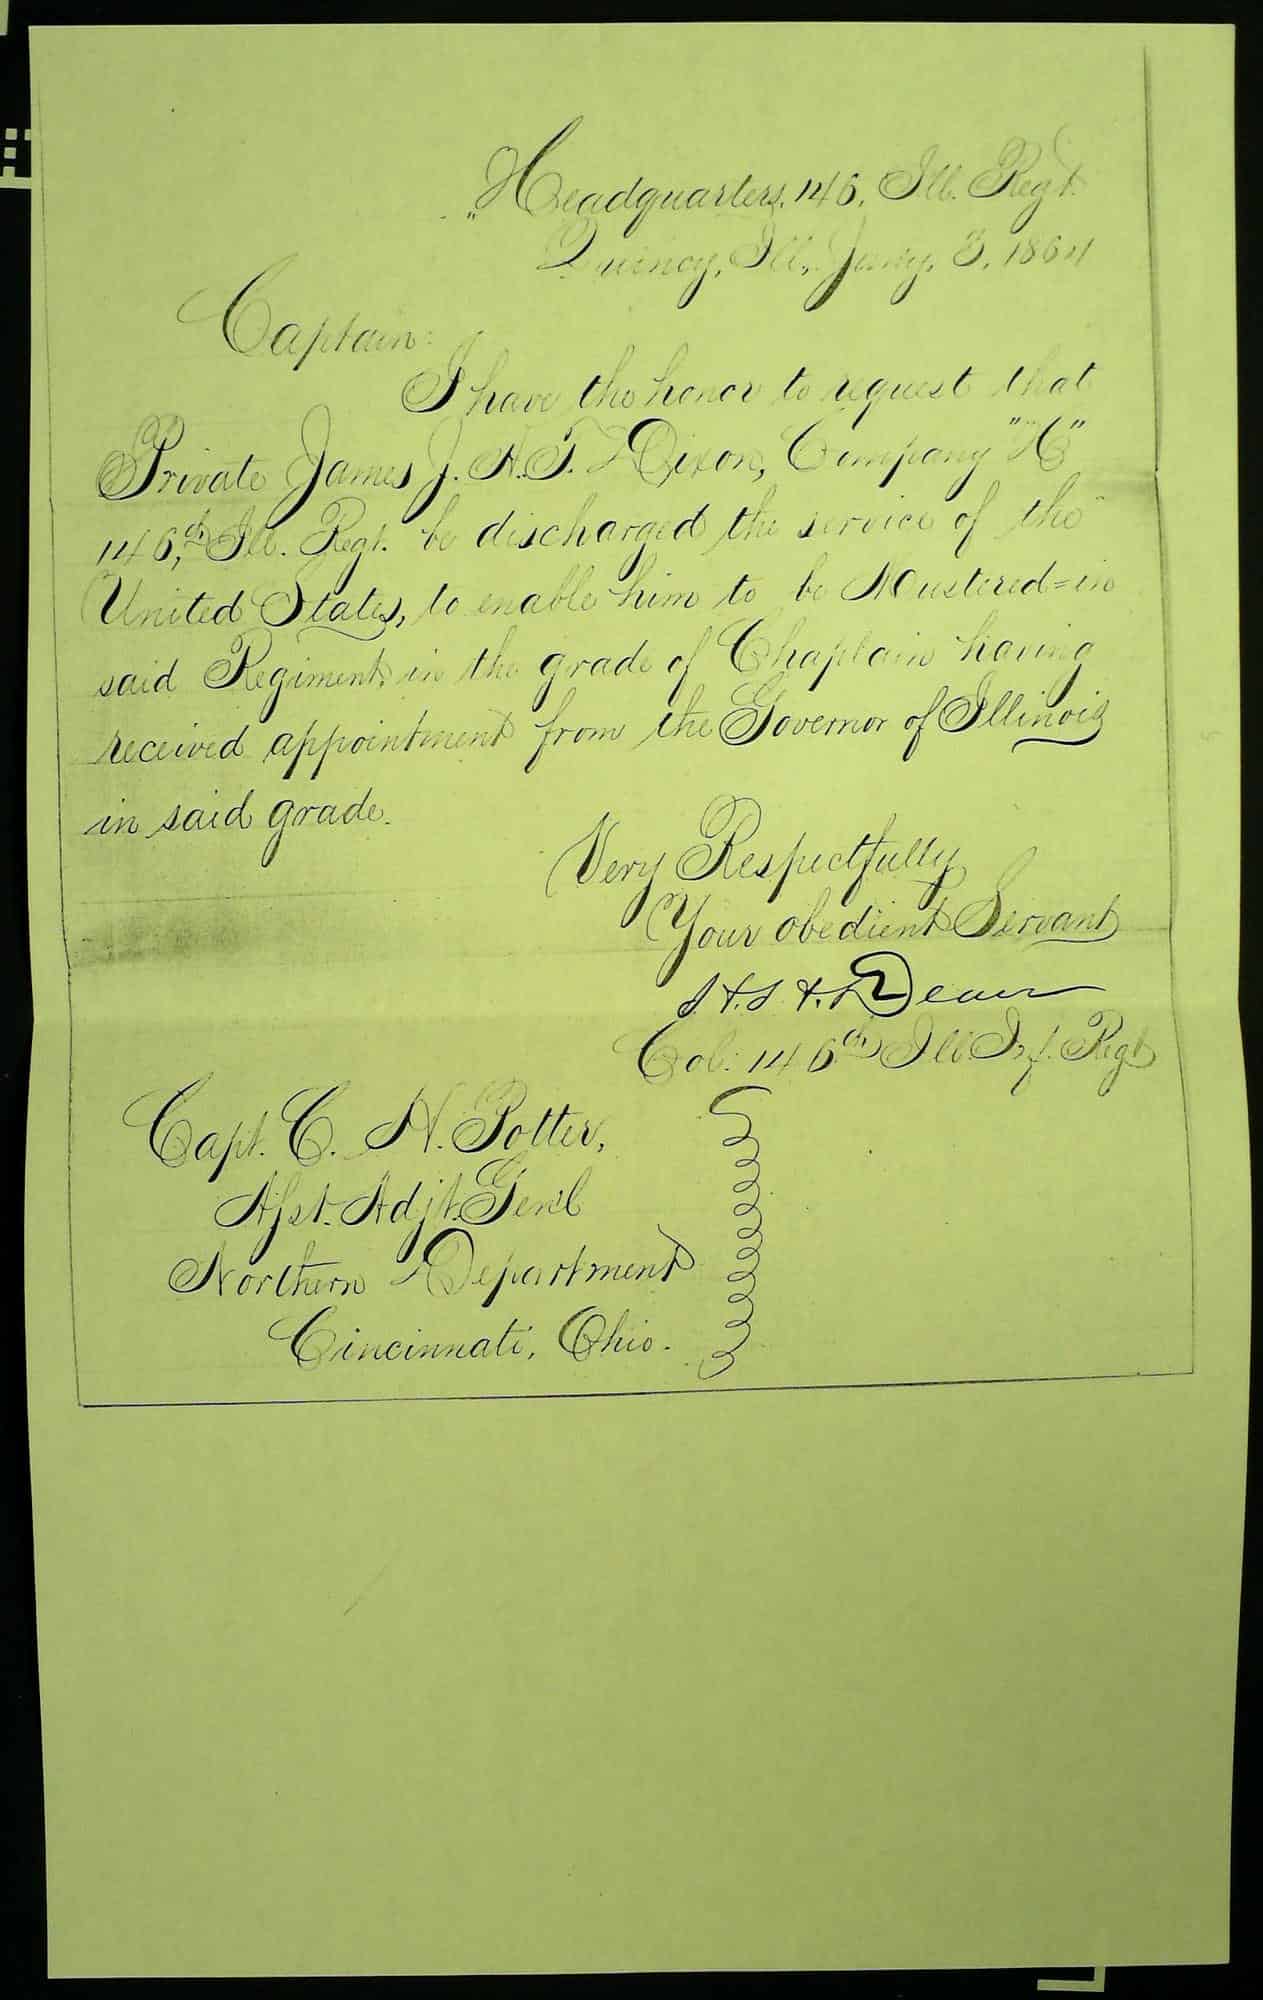 Headquarters, 146, Ill. Regt.
Quincy, Ill., Jany. 3, 1864
Captain:
I have the honor to request that
Private James J. H. T. Dixon, Company "H"
146,th Ill. Regt. be discharged the service of the
United States, to enable him to be Mustered=in
said Regiment, in the grade of Chaplain having
received appointment from the Governor of Illinois
in said grade.
Very Respectfully
Your obedient Servant
Dean
Col. 146th Ill. Inf. Regt
Capt. C. H. Potter,
Asst. Adjt. Genl
Northern Department
Cincinnati, Ohio.